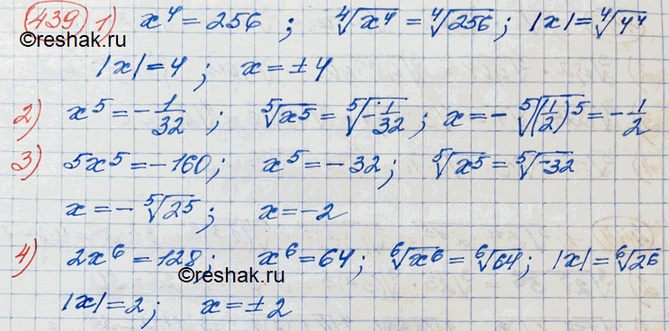 439 1) x⁴ = 256 ; ⁴√x⁴ = ⁴√256 ; |x| = ⁴√4⁴
©reshak.ru
|x| = 4 ; x = ±4
2) x⁵ = -1/32 ; ⁵√x⁵ = ⁵√-1/32 ; x = - ⁵√(1/2)⁵ = -1/2
3) 5x⁵ = -160 ; x⁵ = -32 ; ⁵√x⁵ = ⁵√-32
x = - ⁵√2⁵ ; x = -2
4) 2x⁶ = 128 ; x⁶ = 64 ; ⁶√x⁶ = ⁶√64 ; |x| = ⁶√2⁶
©reshak.ru
|x| = 2 ; x = ±2